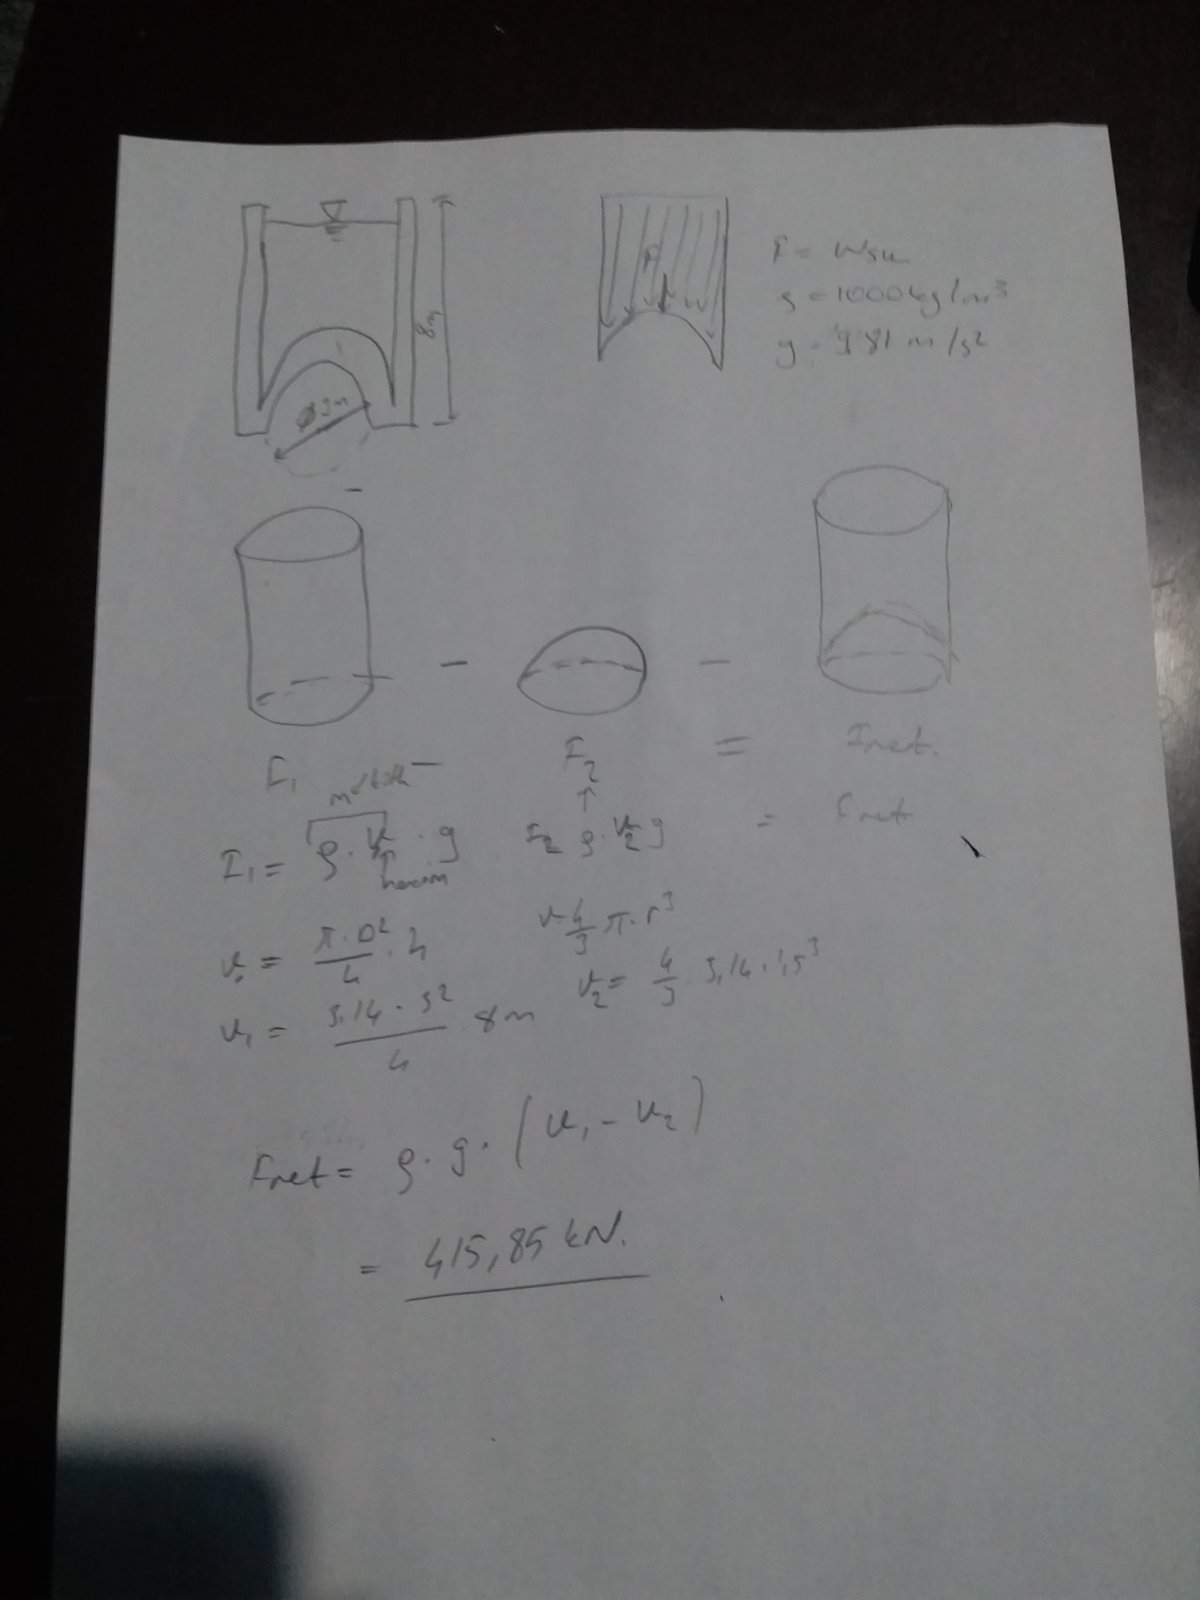 8m
ø3m
F
F = Wsu
ρ = 1000 kg/m³
g = 9,81 m/s²
F₁
F₂
= Fnet.
F₁ = ρ · V · g
hacim
F₂ ρ · V₂ g
= Fnet
V₁ = π · D² / 4 · h
V = 4/3 π · r³
V₁ = 3.14 · 3² / 4 · 8m
V₂ = 4/3 · 3,14 · 1,5³
Fnet = ρ · g · (V₁ - V₂)
= 415,85 kN.